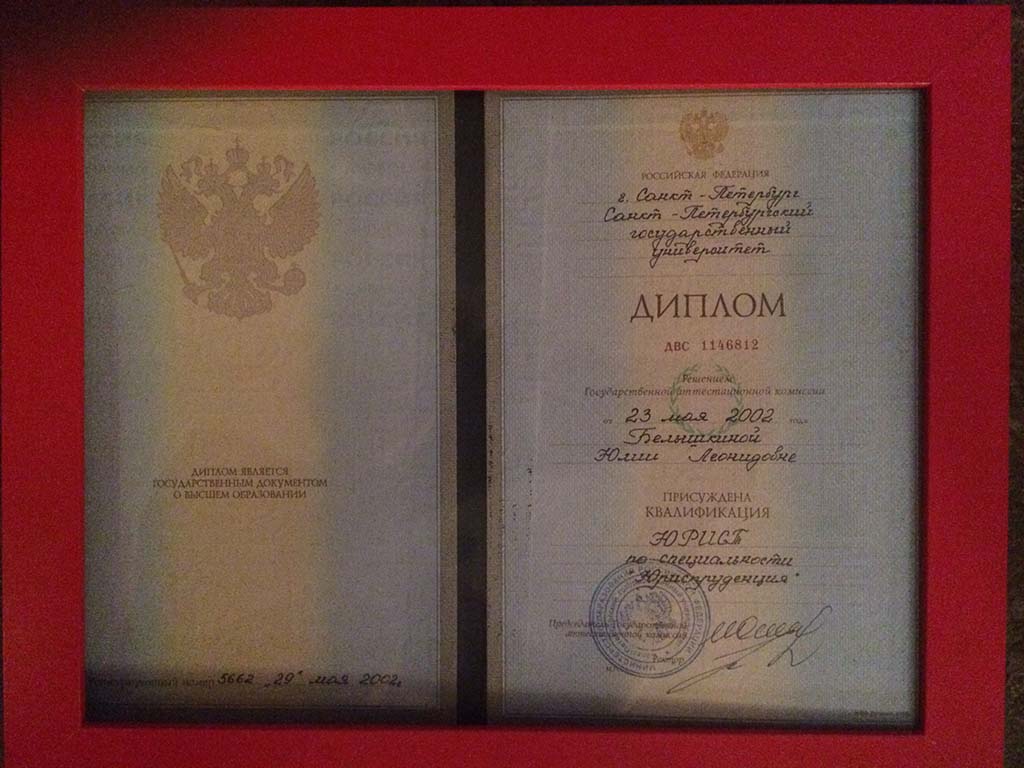 ДИПЛОМ ЯВЛЯЕТСЯ
ГОСУДАРСТВЕННЫМ ДОКУМЕНТОМ
О ВЫСШЕМ ОБРАЗОВАНИИ
номер 5662 „29" мая 2002г.
РОССИЙСКАЯ ФЕДЕРАЦИЯ
г. Санкт-Петербург
Санкт-Петербургский
государственный
университет
ДИПЛОМ
ДВС 1146812
Решением
Государственной аттестационной комиссии
от 23 мая 2002 года
Белышкиной
Юлии Леонидовне
ПРИСУЖДЕНА
КВАЛИФИКАЦИЯ
ЮРИСТ
по специальности
"Юриспруденция"
Председатель Государственной
аттестационной комиссии
Ректор